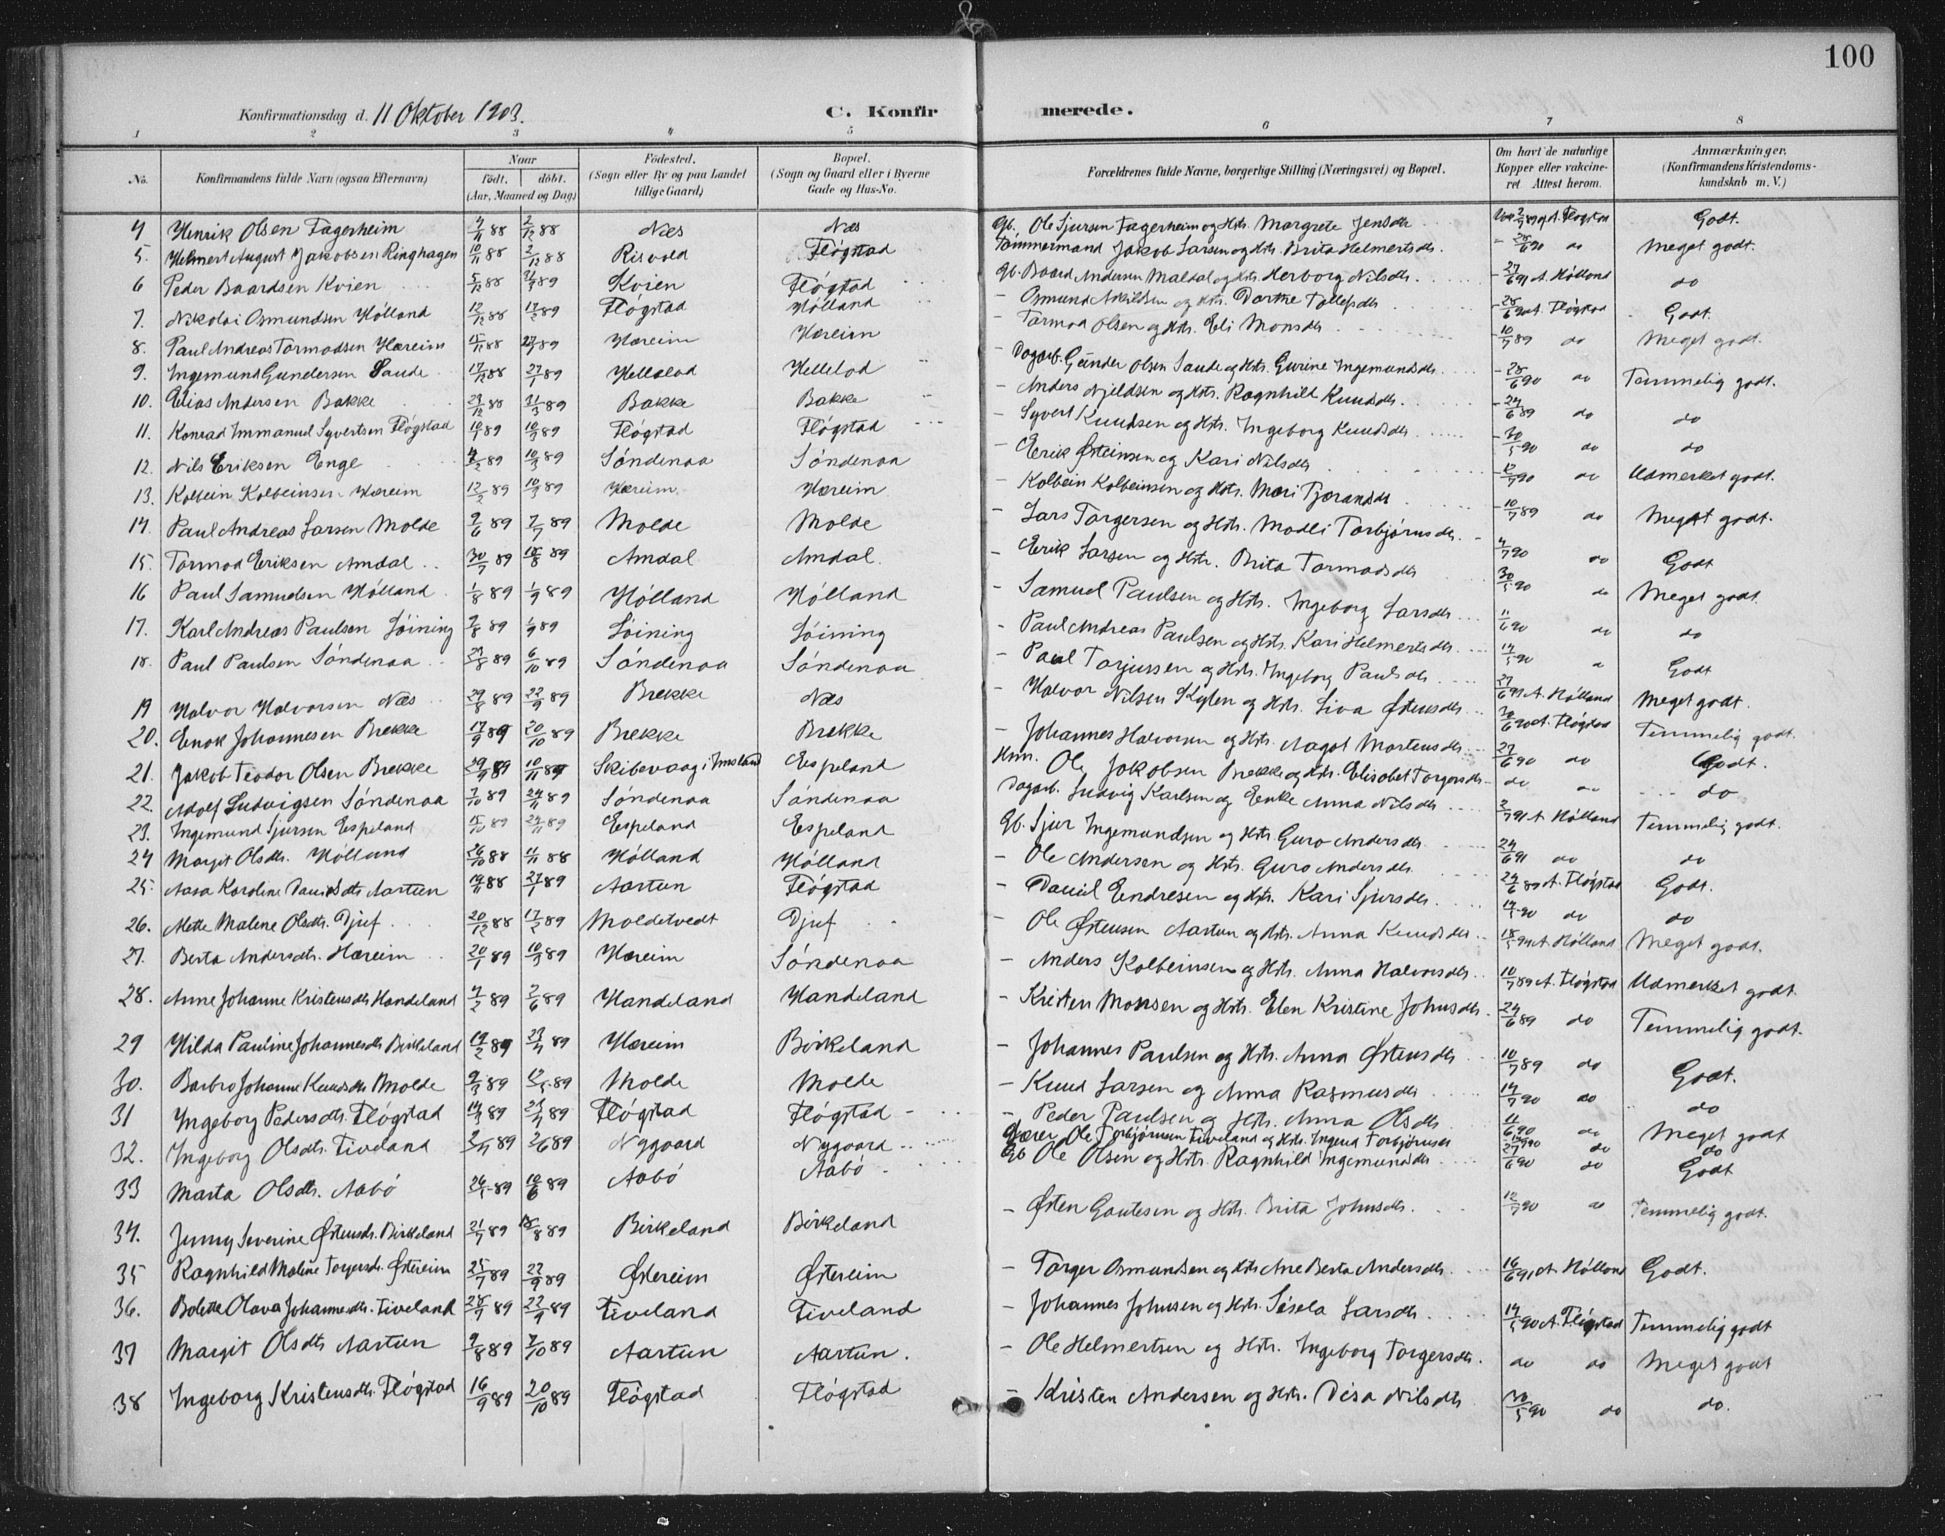 100
Konfirmationsdag d. 11 Oktober 1903. C. Konfirmerede.
1 2 3 4 5 6 7 8
No. Konfirmandens fulde Navn (ogsaa Efternavn) Naar født. døbt. (Aar, Maaned og Dag) Fødested. (Sogn eller By og paa Landet tillige Gaard) Bopæl. (Sogn og Gaard eller i Byerne Gade og Hus-No. Forældrenes fulde Navne, borgerlige Stilling (Næringsvei) og Bopæl. Om havt de naturlige Kopper eller vakcineret Attest herom. Anmærkninger. (Konfirmandens Kristendomskundskab m. V.)
4 Henrik Olsen Fagerheim 4/11 88 2/12 88 Næs Næs Gb. Ole Sjursen Fagerheim og Hstr. Margrete Jensdtr. Godt.
5. Helmert August Jakobsen Ringhagen 10/11 88 2/12 88 Risvold Fløgstad Tømmermand Jakob Larsen og Hstr. Brita Helmertsdtr. 28/6 90 do Meget godt.
6 Peder Baardsen Kvien 5/12 88 Kvien Fløgstad Gb. Baard Andersen Maldal og Hstr. Herborg Nilsdtr. 27/6 91 A. Hølland do
7. Nikolai Osmundsen Hølland 12/12 88 17/2 89 Fløgstad Hølland - Osmund Askildsen og Hstr. Dorthe Tollefsdtr. 28/6 90 A. Fløgstad Godt.
8. Paul Andreas Tormodsen Hæreim 15/11 88 Hæreim Hæreim - Tormod Olsen og Hstr. Eli Monsdtr. 10/7 89 do Meget godt.
9. Ingemund Gundersen Saude 17/12 88 27/1 89 Hellelod Hellelod - Dagarb. Gunder Olsen Saude og Hstr. Gurine Ingemundsdtr. 28/6 90 do Temmelig godt.
10. Elias Andersen Bakke 29/12 88 31/3 89 Bakke Bakke - Anders Njeldsen og Hstr. Ragnhild Knudsdtr. 24/6 89 do do
11. Konrad Immanuel Syvertsen Fløgstad 10/1 89 10/3 89 Fløgstad Fløgstad - Syvert Knudsen og Hstr. Ingeborg Knudsdtr. 30/5 90 do do
12. Nils Eriksen Enge 10/3 89 Søndenaa Søndenaa - Erik Østeinsen og Kari Nilsdtr. 12/7 90 do Udmerket godt.
13. Kolbein Kolbeinsen Hæreim 12/2 89 10/3 89 Hæreim Hæreim - Kolbein Kolbeinsen og Hstr. Mari Tjerandsdtr. 10/7 89 do Meget godt.
14 Paul Andreas Larsen Molde 9/6 89 7/7 89 Molde Molde - Lars Torgersen og Hstr. Modli Torbjørnsdtr. 4/7 90 do Godt
15. Tormod Eriksen Amdal 30/7 89 18/8 89 Amdal Amdal. - Erik Larsen og Hstr. Brita Tormodsdtr. 30/5 90 do Meget godt.
16 Paul Samuelsen Hølland 1/8 89 1/9 89 Hølland Hølland - Samuel Paulsen og Hstr. Ingeborg Larsdtr. 11/6 90 do do
17. Karl Andreas Paulsen Løining 7/8 89 1/9 89 Løining Løining - Paul Andreas Paulsen og Hstr. Kari Helmertsdtr. 14/5 90 Godt
18. Paul Paulsen Søndenaa 29/8 89 6/10 89 Søndenaa Søndenaa - Paul Torjussen og Hstr. Ingeborg Paulsdtr. 27/6 91 A. Hølland Meget godt.
19 Halvor Halvorsen Næs 29/8 89 22/9 89 Brekke Næs - Halvor Nilsen og Hstr. Siva Østensdtr. 30/6 90 A. Fløgstad Temmelig godt.
20. Enok Johannesen Brekke 17/9 89 20/10 89 Brekke Brekke - Johannes Halvorsen og Hstr. Aagot Mortensdtr. 27/6 90 do Godt.
21. Jakob Teodor Olsen Brekke 29/9 89 10/11 89 Skibevaag i Imsland Espeland Hmn. Ole Jakobsen Brekke og Hstr. Elisabet Torgersdtr. do do do
22. Adolf Ludvigsen Søndenaa 7/10 89 24/11 89 Søndenaa Søndenaa Dagarb. Ludvig Karlsen og Enke Anna Nilsdtr. 2/7 91 A. Hølland Temmelig godt.
23. Ingemund Sjursen Espeland 15/10 89 24/11 89 Espeland Espeland Gb. Sjur Ingemundsen og Hstr. Guro Andersdtr. 24/6 91 do do
24 Margit Olsdtr. Hølland 26/10 88 11/11 88 Hølland Hølland - Ole Andersen og Hstr. Guro Andersdtr. 24/6 89 A. Fløgstad Godt.
25. Aasa Karoline Danielsdtr. Aartun 19/11 88 27/1 89 Aartun Fløgstad - Daniel Endresen og Hstr. Kari Sjursdtr. 14/5 90 do do
26. Mette Malene Olsdtr. Djuf 20/12 88 17/2 89 Moldetvedt Djuf - Ole Østensen Aartun og Hstr. Anna Knudsdtr. 18/5 91 A. Hølland Meget godt.
27. Berta Andersdtr. Hæreim 20/1 89 10/3 89 Hæreim Søndenaa - Anders Kolbeinsen og Hstr. Anna Halvorsdtr. 10/7 89 A. Fløgstad Udmerket godt.
28. Anne Johanne Kristensdtr. Handeland 4/2 89 2/6 89 Handeland Handeland - Kristen Monsen og Hstr. Elen Kristine Johnsdtr. 24/6 89 do Temmelig godt.
29 Hilda Pauline Johannesdtr. Birkeland 19/2 89 Hæreim Birkeland - Johannes Paulsen og Hstr. Anna Østensdtr. 10/7 89 do Godt.
30. Barbro Johanne Knudsdtr. Molde 9/3 89 Molde Molde - Knud Larsen og Anna Rasmusdtr. 14/7 90 do do
31 Ingeborg Pedersdtr. Fløgstad 14/3 89 Fløgstad Fløgstad - Peder Paulsen og Hstr. Anna Olsdtr. 11/6 90 do Meget godt
32. Ingeborg Olsdtr. Tiveland 2/6 89 Nygaard Nygaard Ole Torbjørnsen Tiveland og Hstr. Ingerid Torbjørnsdtr. do do
33 Marta Olsdtr. Aabø 26/5 89 10/6 89 Aabø Aabø Gb Ole Olsen og Hstr. Ragnhild Ingemundsdtr. 27/6 90 do Godt
34. Jenny Severine Østensdtr. Birkeland 21/7 89 18/8 89 Birkeland Birkeland - Østen Gautesen og Hstr. Brita Johnsdtr. 12/7 90 do Temmelig godt.
35 Ragnhild Maline Torgersdtr. Østereim 25/7 89 22/9 89 Østereim Østereim - Torger Osmundsen og Hstr. Ane Berta Andersdtr. 16/6 91 A. Hølland Godt.
36. Bolette Olava Johannesdtr. Tiveland 22/9 89 Tiveland Tiveland - Johannes Johnsen og Hstr. Sesela Larsdtr. 14/5 90 A. Fløgstad Temmelig godt
37 Margit Olsdtr. Aartun 9/8 89 7/10 89 Aartun Aartun. - Ole Helmertsen og Hstr. Ingeborg Torgersdtr. do do Meget godt
38 Ingeborg Kristensdtr. Fløgstad 16/9 89 20/10 89 Fløgstad Fløgstad - Kristen Andersen og Hstr. Disa Nilsdtr. 30/5 90 do do.